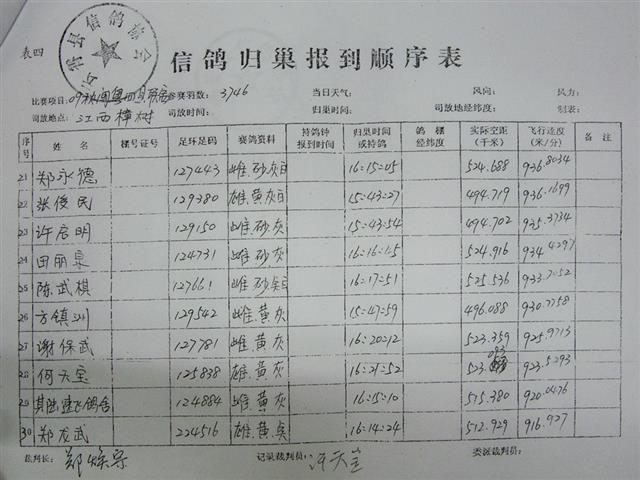 表四
信鸽归巢报到顺序表
县信鸽协会
比赛项目: 参赛羽数: 3746 当日天气: 风向: 风力:
司放地点: 江西樟树 司放时间: 归巢时间: 司放地经纬度: 制表:
序号 姓名 棚号证号 足环足码 赛鸽资料 持鸽钟报到时间 归巢时间或持鸽 鸽棚经纬度 实际空距(千米) 飞行速度(米/分) 备注
21 郑永德 127443 雌.砂灰白 16:15:05 524.688 936.8034
22 张俊民 129380 雄.黄灰白 15:43:27 494.719 936.1699
23 许启明 129150 雌.砂灰 15:43:54 494.702 935.3734
24 田丽泉 124731 雌.砂灰 16:16:15 524.916 934.4297
25 陈武棋 127661 雌.砂 16:17:51 525.536 933.7052
26 方镇洲 129542 雌.黄灰 15:47:59 496.088 930.7758
27 谢保武 127781 雌.黄灰 16:20:12 523.359 925.9713
28 何天宝 125838 雄.黄灰 16:21:52 523.093 923.5293
29 124884 雌.黄灰 16:15:10 515.380 920.0476
30 郑龙武 224516 雄.黄 16:14:24 512.929 916.927
裁判长: 记录裁判员: 委派裁判员: